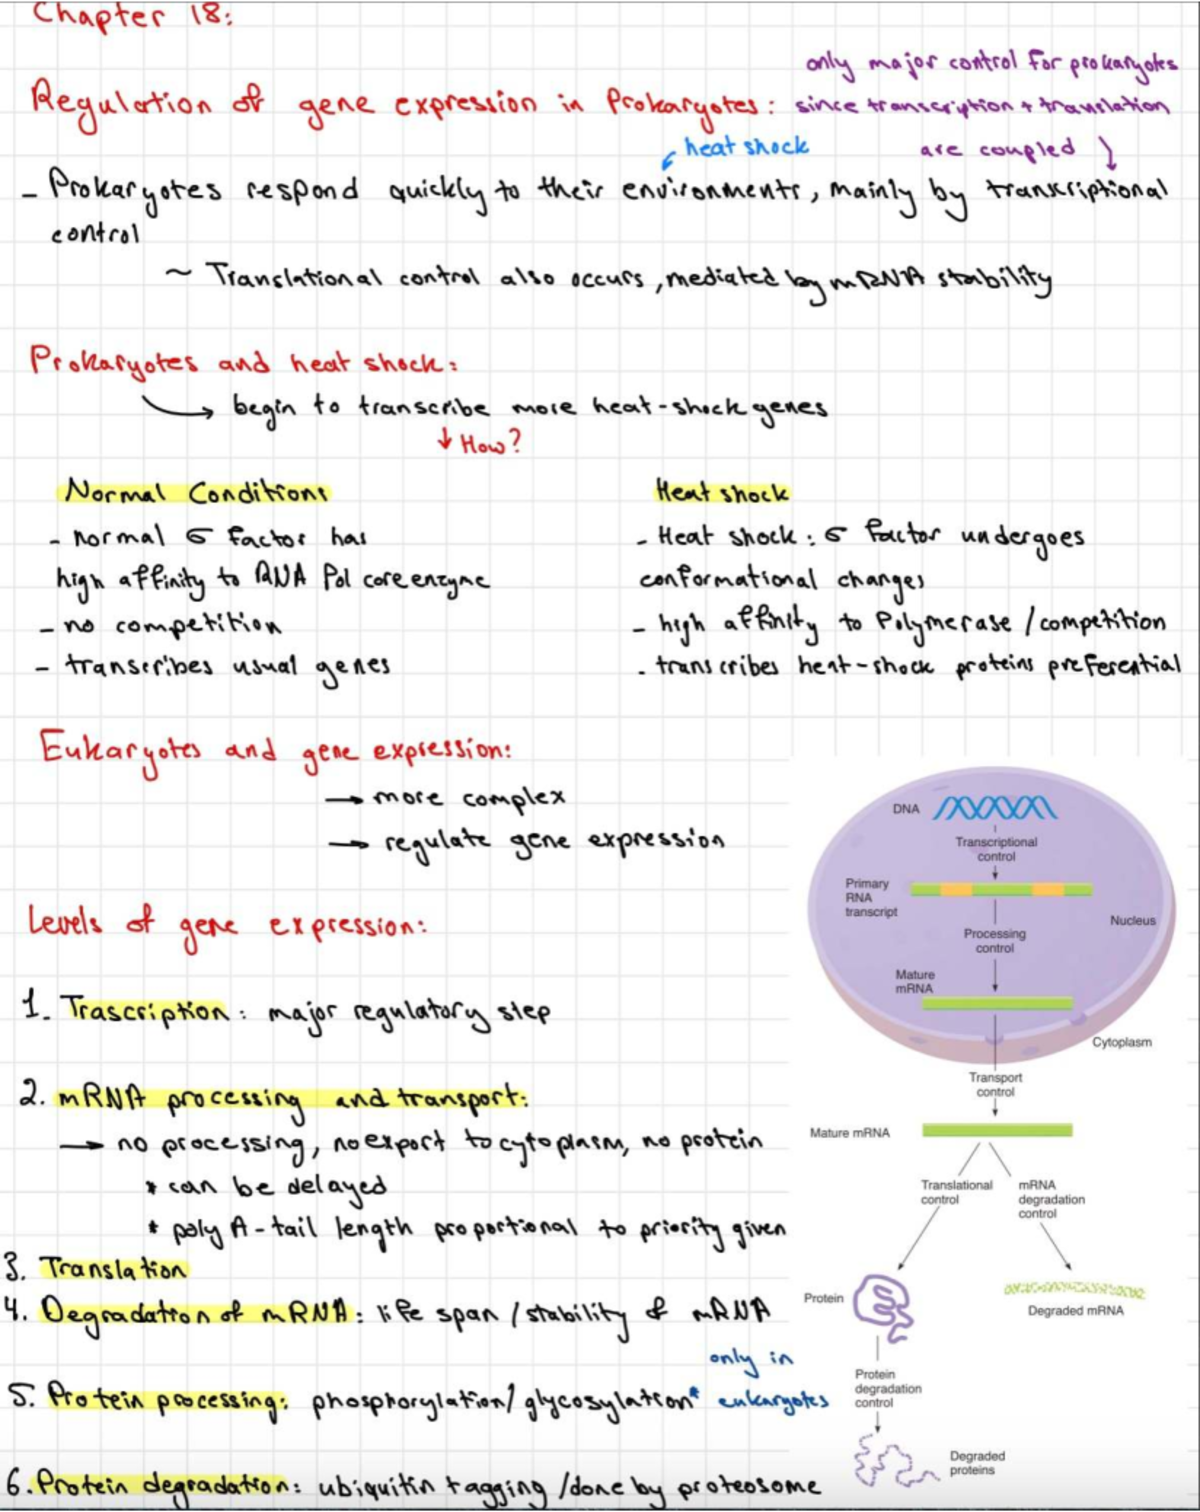 Chapter 18:
only major control for prokaryotes
Regulation of gene expression in Prokaryotes: since transcription + translation
heat shock are coupled
- Prokaryotes respond quickly to their environments, mainly by transcriptional
control
~ Translational control also occurs, mediated by mRNA stability
Prokaryotes and heat shock:
→ begin to transcribe more heat-shock genes
↓ How?
Normal Conditions
- normal σ factor has
high affinity to RNA Pol core enzyme
- no competition
- transcribes usual genes
Heat shock
- Heat shock: σ factor undergoes
conformational changes
- high affinity to Polymerase / competition
- transcribes heat-shock proteins preferential
Eukaryotes and gene expression:
→ more complex
→ regulate gene expression
Levels of gene expression:
1. Trascription: major regulatory step
2. mRNA processing and transport:
→ no processing, no export to cytoplasm, no protein
* can be delayed
* poly A-tail length proportional to priority given
3. Translation
4. Degradation of mRNA: life span / stability of mRNA
only in
5. Protein processing: phosphorylation/glycosylation* eukaryotes
6. Protein degradation: ubiquitin tagging /done by proteosome
DNA
Transcriptional
control
Primary
RNA
transcript
Nucleus
Processing
control
Mature
mRNA
Cytoplasm
Transport
control
Mature mRNA
Translational
control
mRNA
degradation
control
Protein
Degraded mRNA
Protein
degradation
control
Degraded
proteins